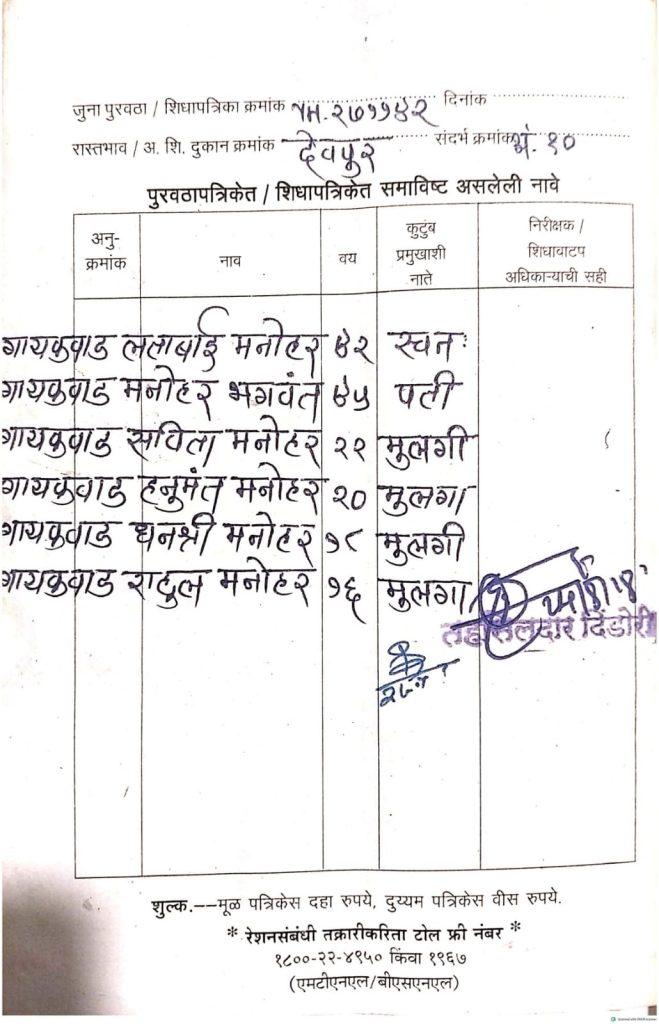 जुना पुरवठा / शिधापत्रिका क्रमांक जम.२७११४२ दिनांक
रास्तभाव / अ. शि. दुकान क्रमांक देवपूर संदर्भ क्रमांक अं. १०
पुरवठापत्रिकेत / शिधापत्रिकेत समाविष्ट असलेली नावे
अनु-क्रमांक नाव वय कुटुंब प्रमुखाशी नाते निरीक्षक / शिधावाटप अधिकाऱ्याची सही
गायकवाड लताबाई मनोहर ४२ स्वतः
गायकवाड मनोहर भगवंत ४५ पती
गायकवाड सविता मनोहर २२ मुलगी
गायकवाड हनुमंत मनोहर २० मुलगा
गायकवाड धनश्री मनोहर १८ मुलगी
गायकवाड राहुल मनोहर १६ मुलगा
तहसिलदार दिंडोरी
शुल्क.--मूळ पत्रिकेस दहा रुपये, दुय्यम पत्रिकेस वीस रुपये.
* रेशनसंबंधी तक्रारीकरिता टोल फ्री नंबर *
१८००-२२-४९५० किंवा १९६७
(एमटीएनएल/बीएसएनएल)